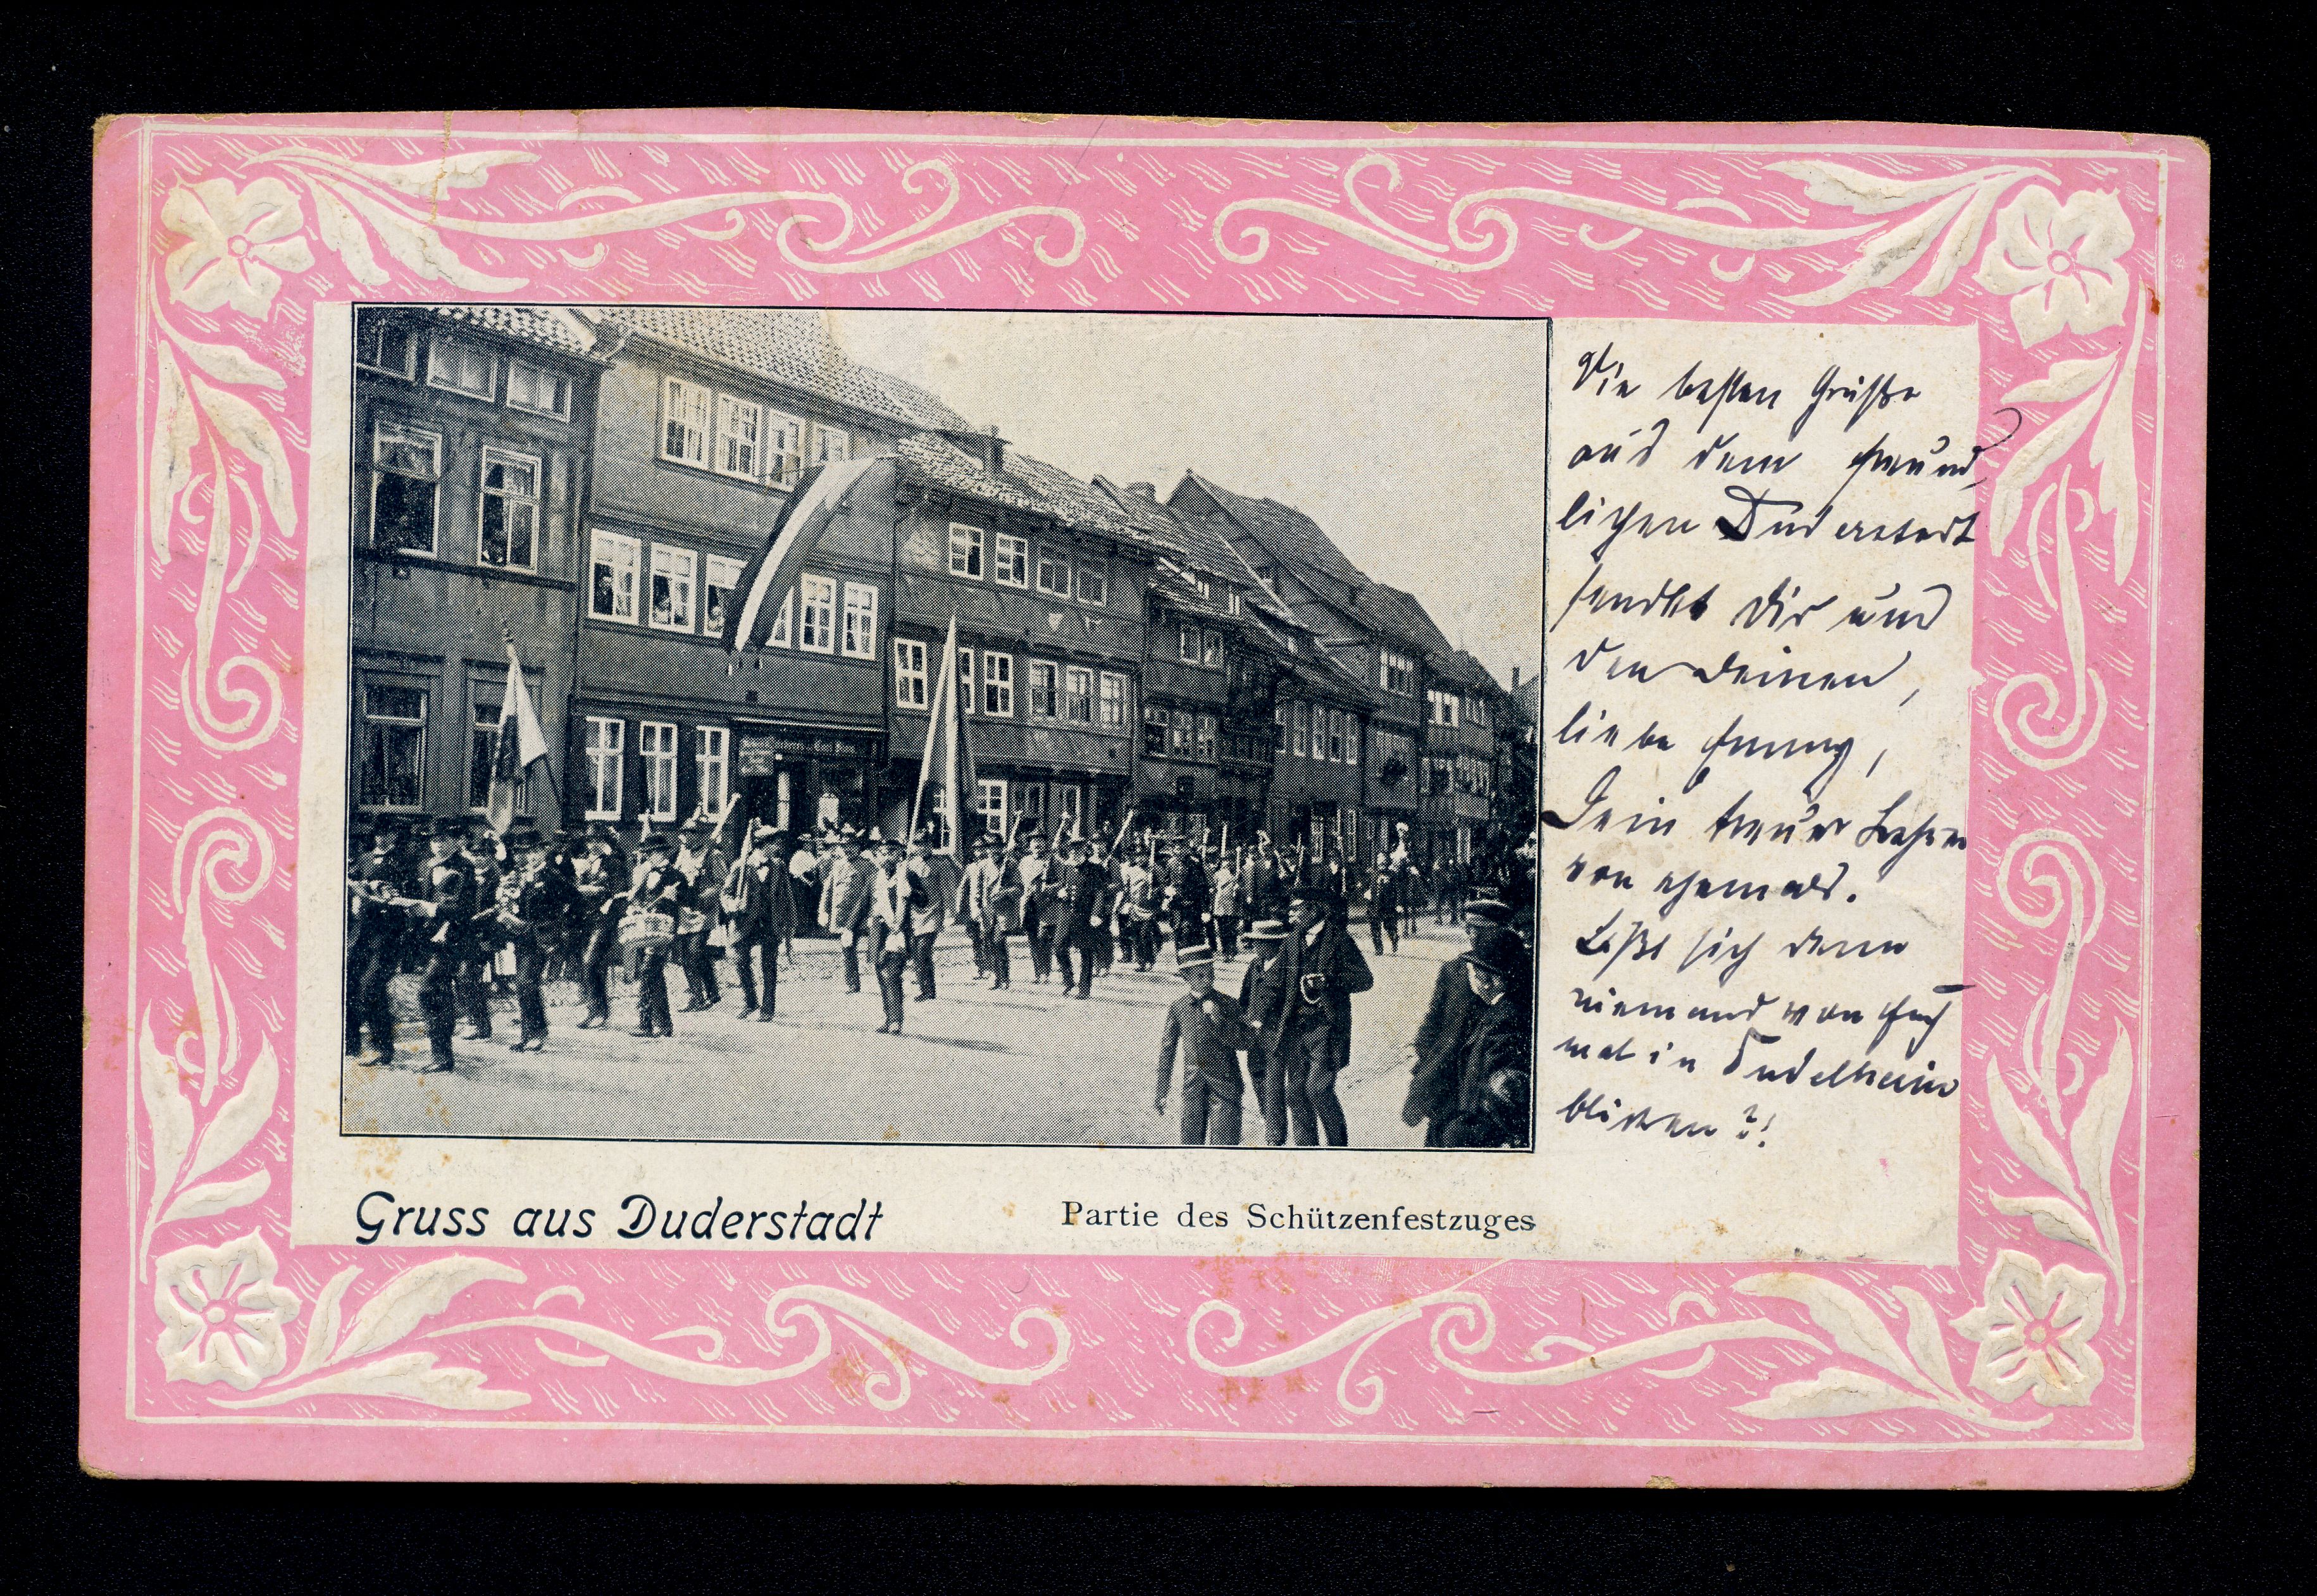 Die besten Grüße
aus dem freund,
lichen Duderstadt
sendet Dir und
den Deinen,
liebe
Dein treuer
von ehemals.
Läßt sich denn
niemand von Euch
mal in
blicken?!
Gruss aus Duderstadt
Partie des Schützenfestzuges